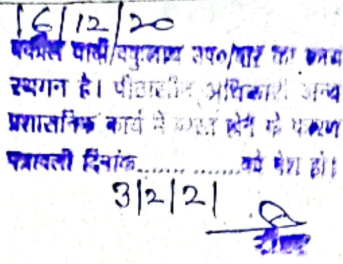 16/12/20
वकील वादी/वकुलाय उप0/बार का
स्थगन है। पीठासीन अधिकारी अन्य
प्रशासनिक कार्य में व्यस्त होने के कारण
पत्रावली दिनांक..............को पेश हो।
3/2/21